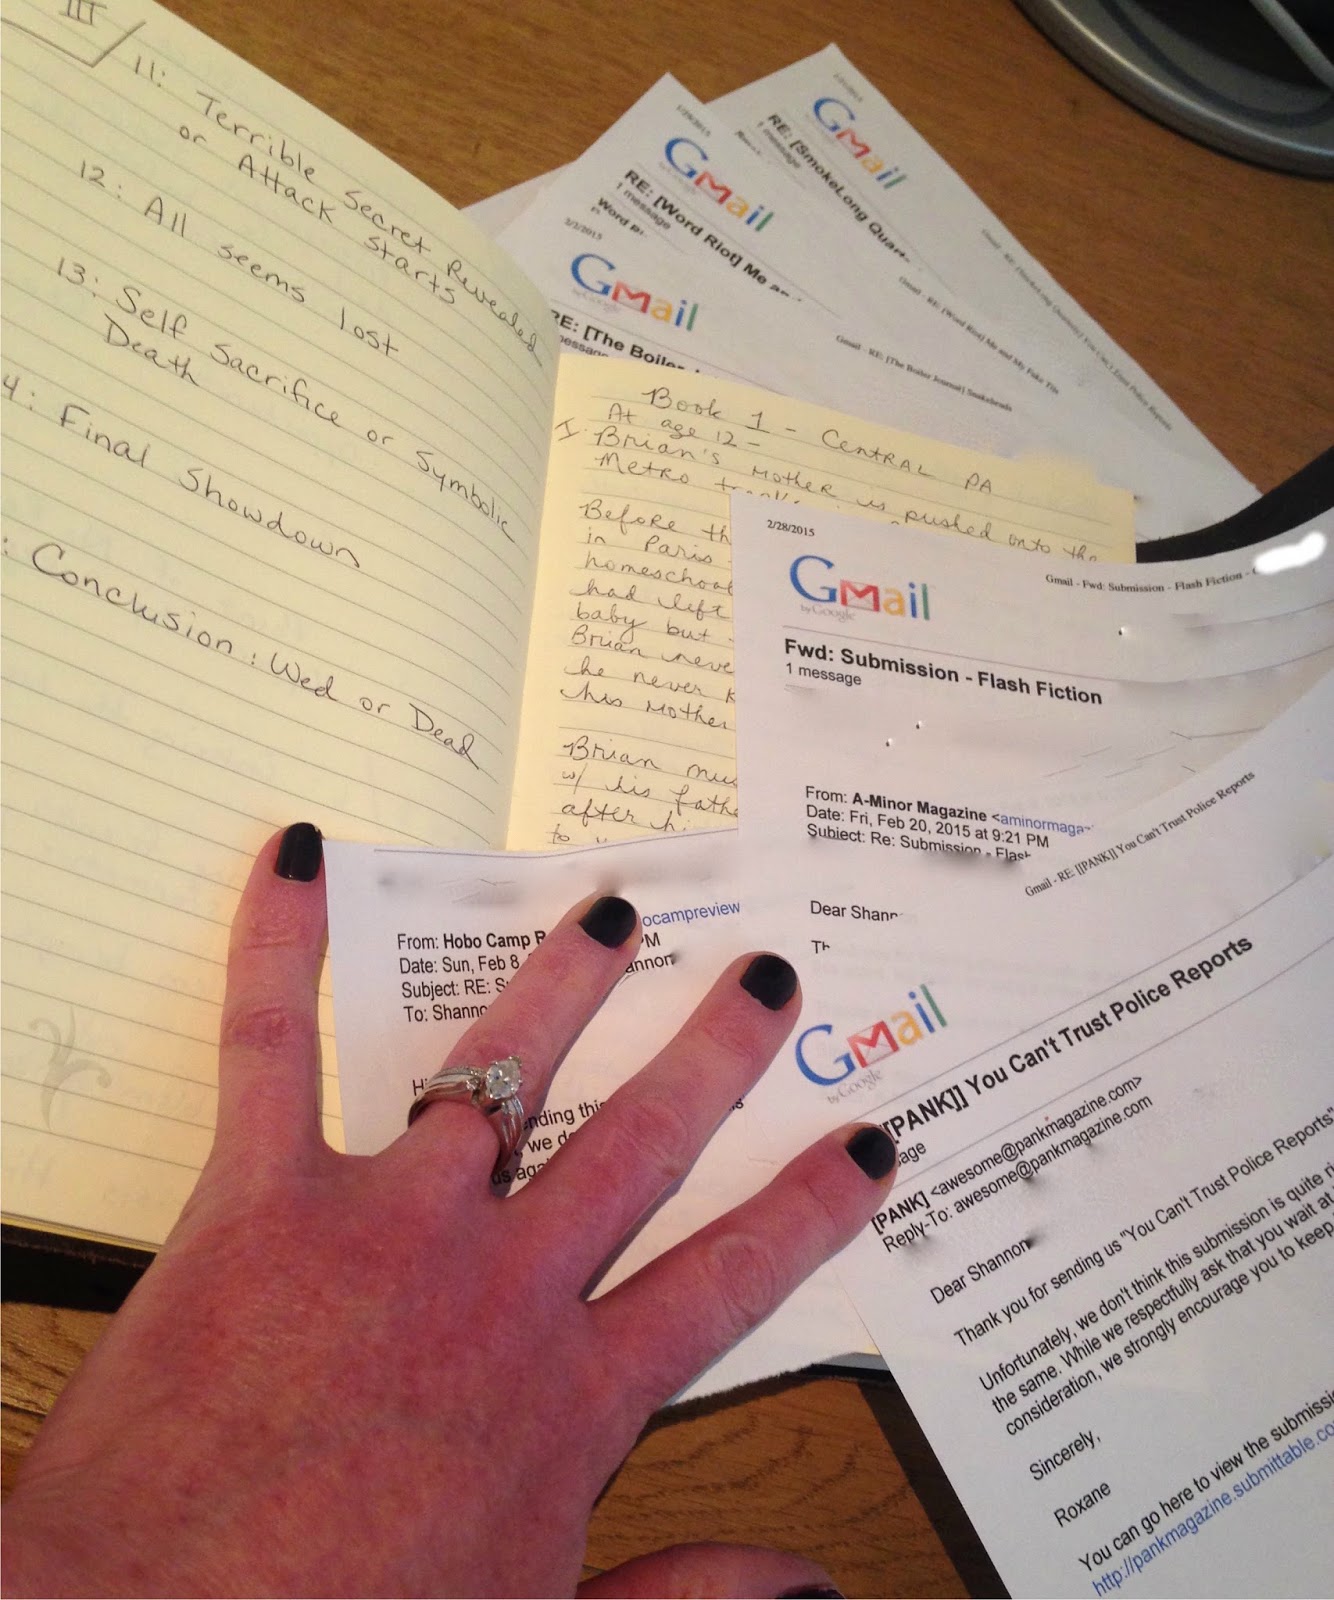 III
11: Terrible Secret Revealed
or Attack starts
12: All seems lost
13: Self Sacrifice or Symbolic
Death
4: Final Showdown
: Conclusion: Wed or Dead
Gmail
RE: [SmokeLong Quart
1 message
Gmail
by Google
RE: [Word Riot] Me an
1 message
Word Ri
Gmail - RE: [Word Riot] Me and My Fake Tits
3/3/2015
Gmail
by Google
RE: [The Boiler
message
Gmail - RE: [The Boiler Journal] Snakeheads
Book 1 - Central PA
At age 12 -
I. Brian's mother is pushed onto the
Metro
Before th
in Paris
homeschool
had left
baby but
Brian neve
he never k
his mother
Brian mus
w/ his fathe
after hi
to
2/28/2015
Gmail - Fwd: Submission - Flash Fiction -
Gmail
by Google
Fwd: Submission - Flash Fiction
1 message
From: A-Minor Magazine <aminormagaz
Date: Fri, Feb 20, 2015 at 9:21 PM
Subject: Re: Submission - Flash
Dear Shann
Th
From: Hobo Camp R ocampreview
Date: Sun, Feb 8, PM
Subject: RE: S annon
To: Shanno
Hi
ending this
, we do
us aga
Gmail - RE: [[PANK]] You Can't Trust Police Reports
Gmail
by Google
[[PANK]] You Can't Trust Police Reports
sage
[PANK] <awesome@pankmagazine.com>
Reply-To: awesome@pankmagazine.com
Dear Shannon
Thank you for sending us "You Can't Trust Police Reports"
Unfortunately, we don't think this submission is quite ri
the same. While we respectfully ask that you wait at
consideration, we strongly encourage you to keep
Sincerely,
Roxane
You can go here to view the submissi
http://pankmagazine.submittable.co